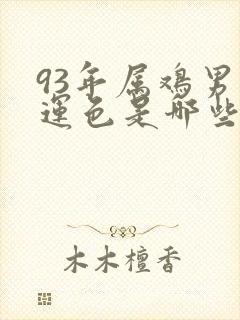 93年属鸡男
运色是哪些
木木檀香